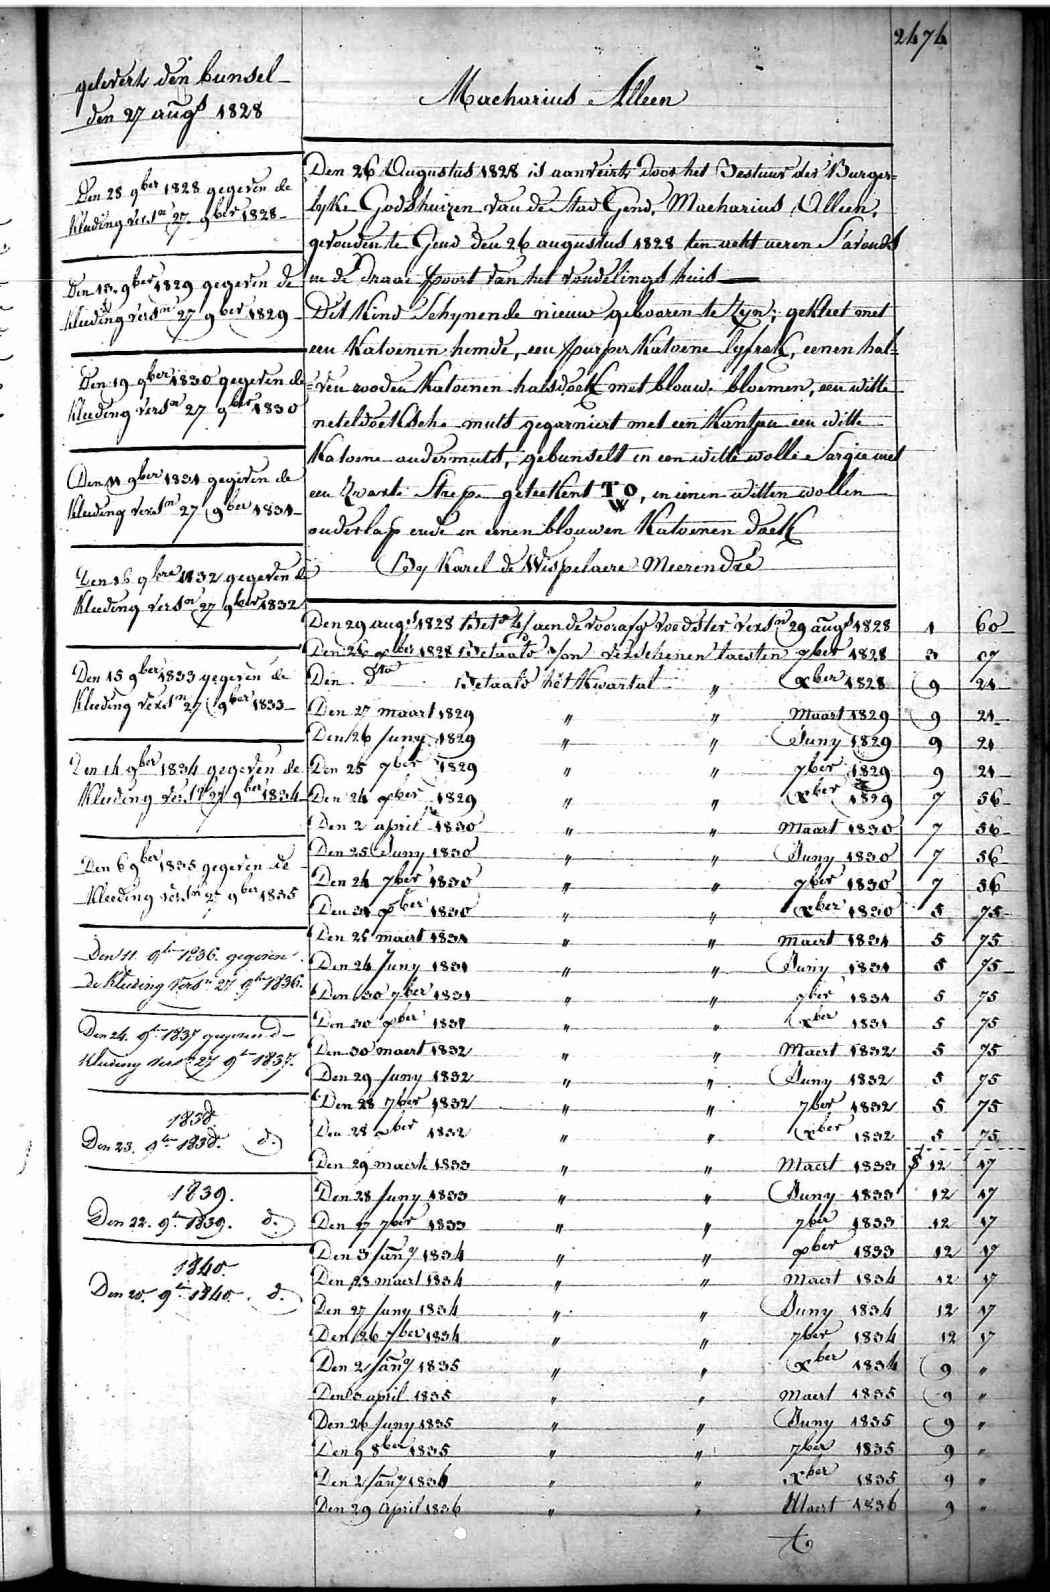 2474
gelevert den bunsel
den 27 augs 1828
Macharius Alleen
Den 28 9ber 1828 gegeven de
kleding vers.n 27 9ber 1828
Den 18 9ber 1829 gegeven de
kleding versn 27 9ber 1829
Den 19 9ber 1830 gegeven de
kleeding versn 27 9ber 1830
Den 11 9ber 1831 gegeven de
kleeding versn 27 9ber 1831
Den 16 9bre 1832 gegeven de
kleeding versn 27 9ber 1832
Den 15 9ber 1833 gegeven de
kleeding versn 27 9ber 1833
Den 14 9ber 1834 gegeven de
kleeding versn 27 9ber 1834
Den 6 9ber 1835 gegeven de
kleeding versn 27 9ber 1835
Den 11. 9br 1836. gegeven
de kleeding versn 27 9br 1836.
Den 24. 9br 1837 gegeven d
kleeding versn 27 9br 1837.
1838
Den 23. 9br 1838. d.
1839.
Den 22. 9br 1839. d.
1840.
Den 20. 9br 1840. d.
Den 26 Augustus 1828 is aanveirt door het Bestuur der Burger=
lyke Godshuizen van de Stad Gend, Macharius Alleen,
gevonden te Gend den 26 augustus 1828 ten acht ueren s'avonds
in de Draai poort van het vondelings huis
Dit kind schynende nieuw gebooren te zyn; gekleet met
een katoenen hemde, een purper katoene lyfrok, eenen hal=
=ven rooden katoenen halsdoek met blouw bloemen, een witte
neteldoeksche muts gegarniert met een kantjen een witte
katoene ondermuts, gebunselt in een witte wolle sargie met
een zwarte streep geteekent TO W, in eenen witten wollen
onderlap ende in eenen blouwen katoenen doek
By Karel de Wispelaere Meerendre
Den 29 augs 1828 Bett aen de voorafg voedster versn 29 augs 1828 1 60
Den 26 xber 1828 Betaald verschenen 7ber 1828 3 07
Den do Betaald het kwartal " xber 1828 9 21
Den 27 maart 1829 " " Maart 1829 9 21
Den 26 Juny 1829 " " Juny 1829 9 21
Den 25 7ber 1829 " " 7ber 1829 9 21
Den 24 xber 1829 " " xber 1829 7 56
Den 2 april 1830 " " Maart 1830 7 56
Den 25 Juny 1830 " " Juny 1830 7 56
Den 24 7ber 1830 " " 7ber 1830 7 56
Den 31 xber 1830 " " xber 1830 5 75
Den 25 maert 1831 " " Maert 1831 5 75
Den 24 Juny 1831 " " Juny 1831 5 75
Den 30 7ber 1831 " " 7ber 1831 5 75
Den 30 xber 1831 " " xber 1831 5 75
Den 30 maert 1832 " " Maert 1832 5 75
Den 29 Juny 1832 " " Juny 1832 5 75
Den 28 7ber 1832 " " 7ber 1832 5 75
Den 28 xber 1832 " " xber 1832 5 75
Den 29 maert 1833 " " Maert 1833 12 17
Den 28 Juny 1833 " " Juny 1833 12 17
Den 27 7ber 1833 " " 7ber 1833 12 17
Den 3 Jany 1834 " " xber 1833 12 17
Den 28 maert 1834 " " Maert 1834 12 17
Den 27 Juny 1834 " " Juny 1834 12 17
Den 26 7ber 1834 " " 7ber 1834 12 17
Den 2 Jany 1835 " " xber 1834 9 "
Den 3 april 1835 " " Maert 1835 9 "
Den 26 Juny 1835 " " Juny 1835 9 "
Den 9 8ber 1835 " " 7ber 1835 9 "
Den 2 Jany 1836 " " xber 1835 9 "
Den 29 April 1836 " " Maert 1836 9 "